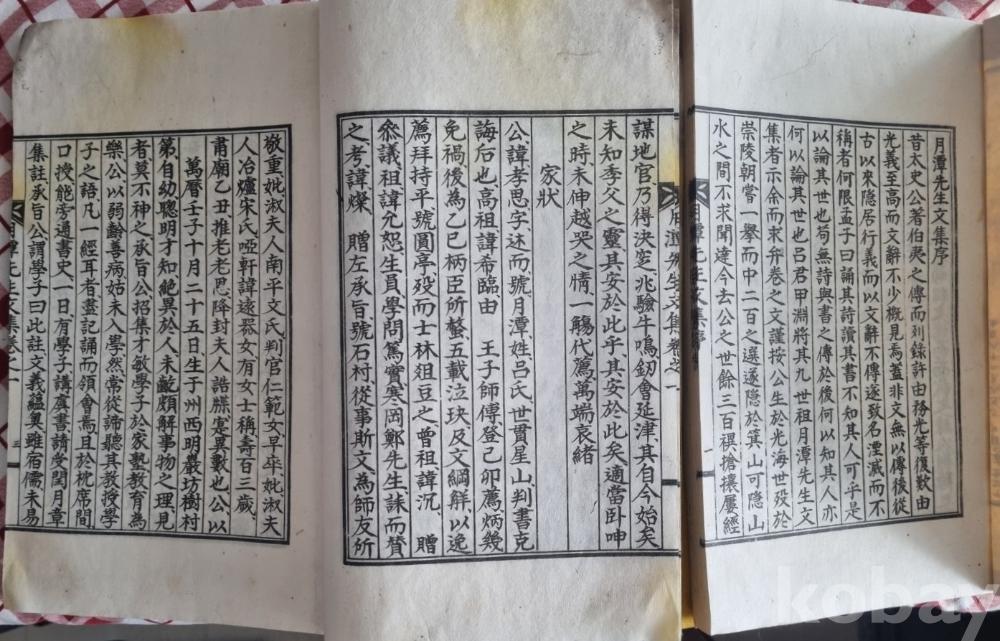 月潭先生文集序
昔太史公著伯夷之傳而列録許由務光等復歎由
光義至高而文辭不少概見焉蓋非文無以傳後從
古以來隱居行義而以文辭不傳遂致名湮滅而不
稱者何限孟子曰誦其詩讀其書不知其人可乎是
以論其世也苟無詩與書之傳於後何以知其人亦
何以論其世也呂君甲淵將其九世祖月潭先生文
集者示余而求弁卷之文謹按公生於光海世殁於
崇陵朝嘗一擧而中二百之選遂隱於箕山可隱山
水之間不求聞達今去公之世餘三百禩搶攘屢經
謀地官乃得決定、兆驗牛鳴、釰會延津、其自今始矣、
未知季父之靈、其安於此乎、其安於此矣、適當卧呻
之時、未伸越哭之情、一觴代薦、萬端哀緒
家狀
公諱孝思、字述而、號月潭、姓呂氏、世貫星山、判書克
誨后也、高祖諱希臨由 王子師傅、登己卯薦、炳幾
免禍、後為乙巳柄臣所螫、五載泣玦、及文網觧、以逸
薦、拜持平、號圓亭、殁而士林俎豆之、曾祖諱沉、 贈
叅議、祖諱允恕、生員、學問篤實、寒岡鄭先生誄而賛
之、考諱燦、 贈左承旨、號石村、從事斯文、為師友所
敬重、妣淑夫人南平文氏、判官仁範女、早卒、妣淑夫
人冶爐宋氏、啞軒諱遠器女、有女士稱、壽百三歲、
肅廟乙丑、推老老恩、降封夫人誥牒、寔異數也、公以
萬曆壬子十月二十五日、生于州西明巖坊樹村
第、自幼聰明才知、絶異於人、未齔、頗解事物之理、見
者莫不神之、承旨公招集才敏學子於家塾、教育為
樂、公以弱齡善病、姑未入學、然常從諦聽其教授學
子之語、凡一經耳者、盡記誦而領會焉、且於枕席間
口授、能旁通書史、一日、有學子講虞書、請敎閏月章
集註、承旨公謂學子曰、此註、文義蘊奧、雖宿儒、未易